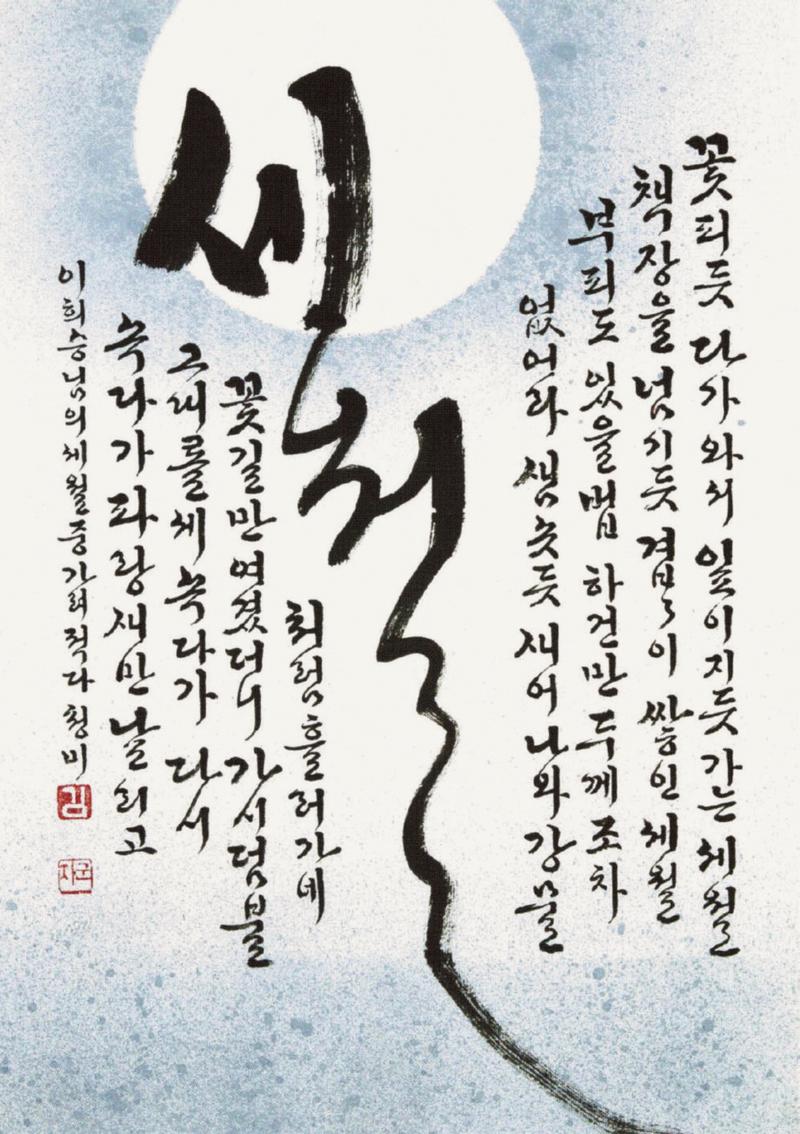 꽃 피듯 다가와서 잎이 지듯 가는 세월
책장을 넘기듯 겹〻이 쌓인 세월
부피도 있을 법 하건만 두께조차
없어라 샘솟듯 새어 나와 강물
세월
처럼 흘러가네
꽃길만 여겼더니 가시덤불
그 속다가 다시
속다가 파랑새만 날리고
이희승님의 세월 중 가려 적다 청비
김